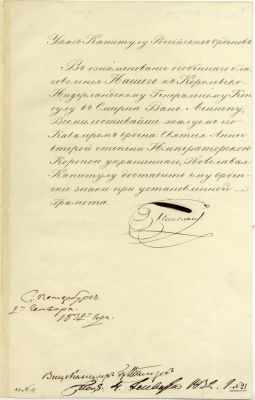 Указъ Капитулу Россійскихъ Орденовъ.
Въ ознаменованіе особеннаго бла-
говоленія Нашего къ Королевско-
Нидерландскому Генеральному Кон-
сулу въ Смирнѣ Ванъ-Леннепу,
Всемилостивѣйше жалуемъ его
Кавалеромъ ордена Святыя Анны
второй степени Императорскою
Короною украшеннаго, Повелѣвая
Капитулу доставить ему орден-
скіе знаки при установленной
Грамотѣ.
Николай
С. Петербургъ.
Генваря
1832 года.
Вицеканцлеръ
1832.